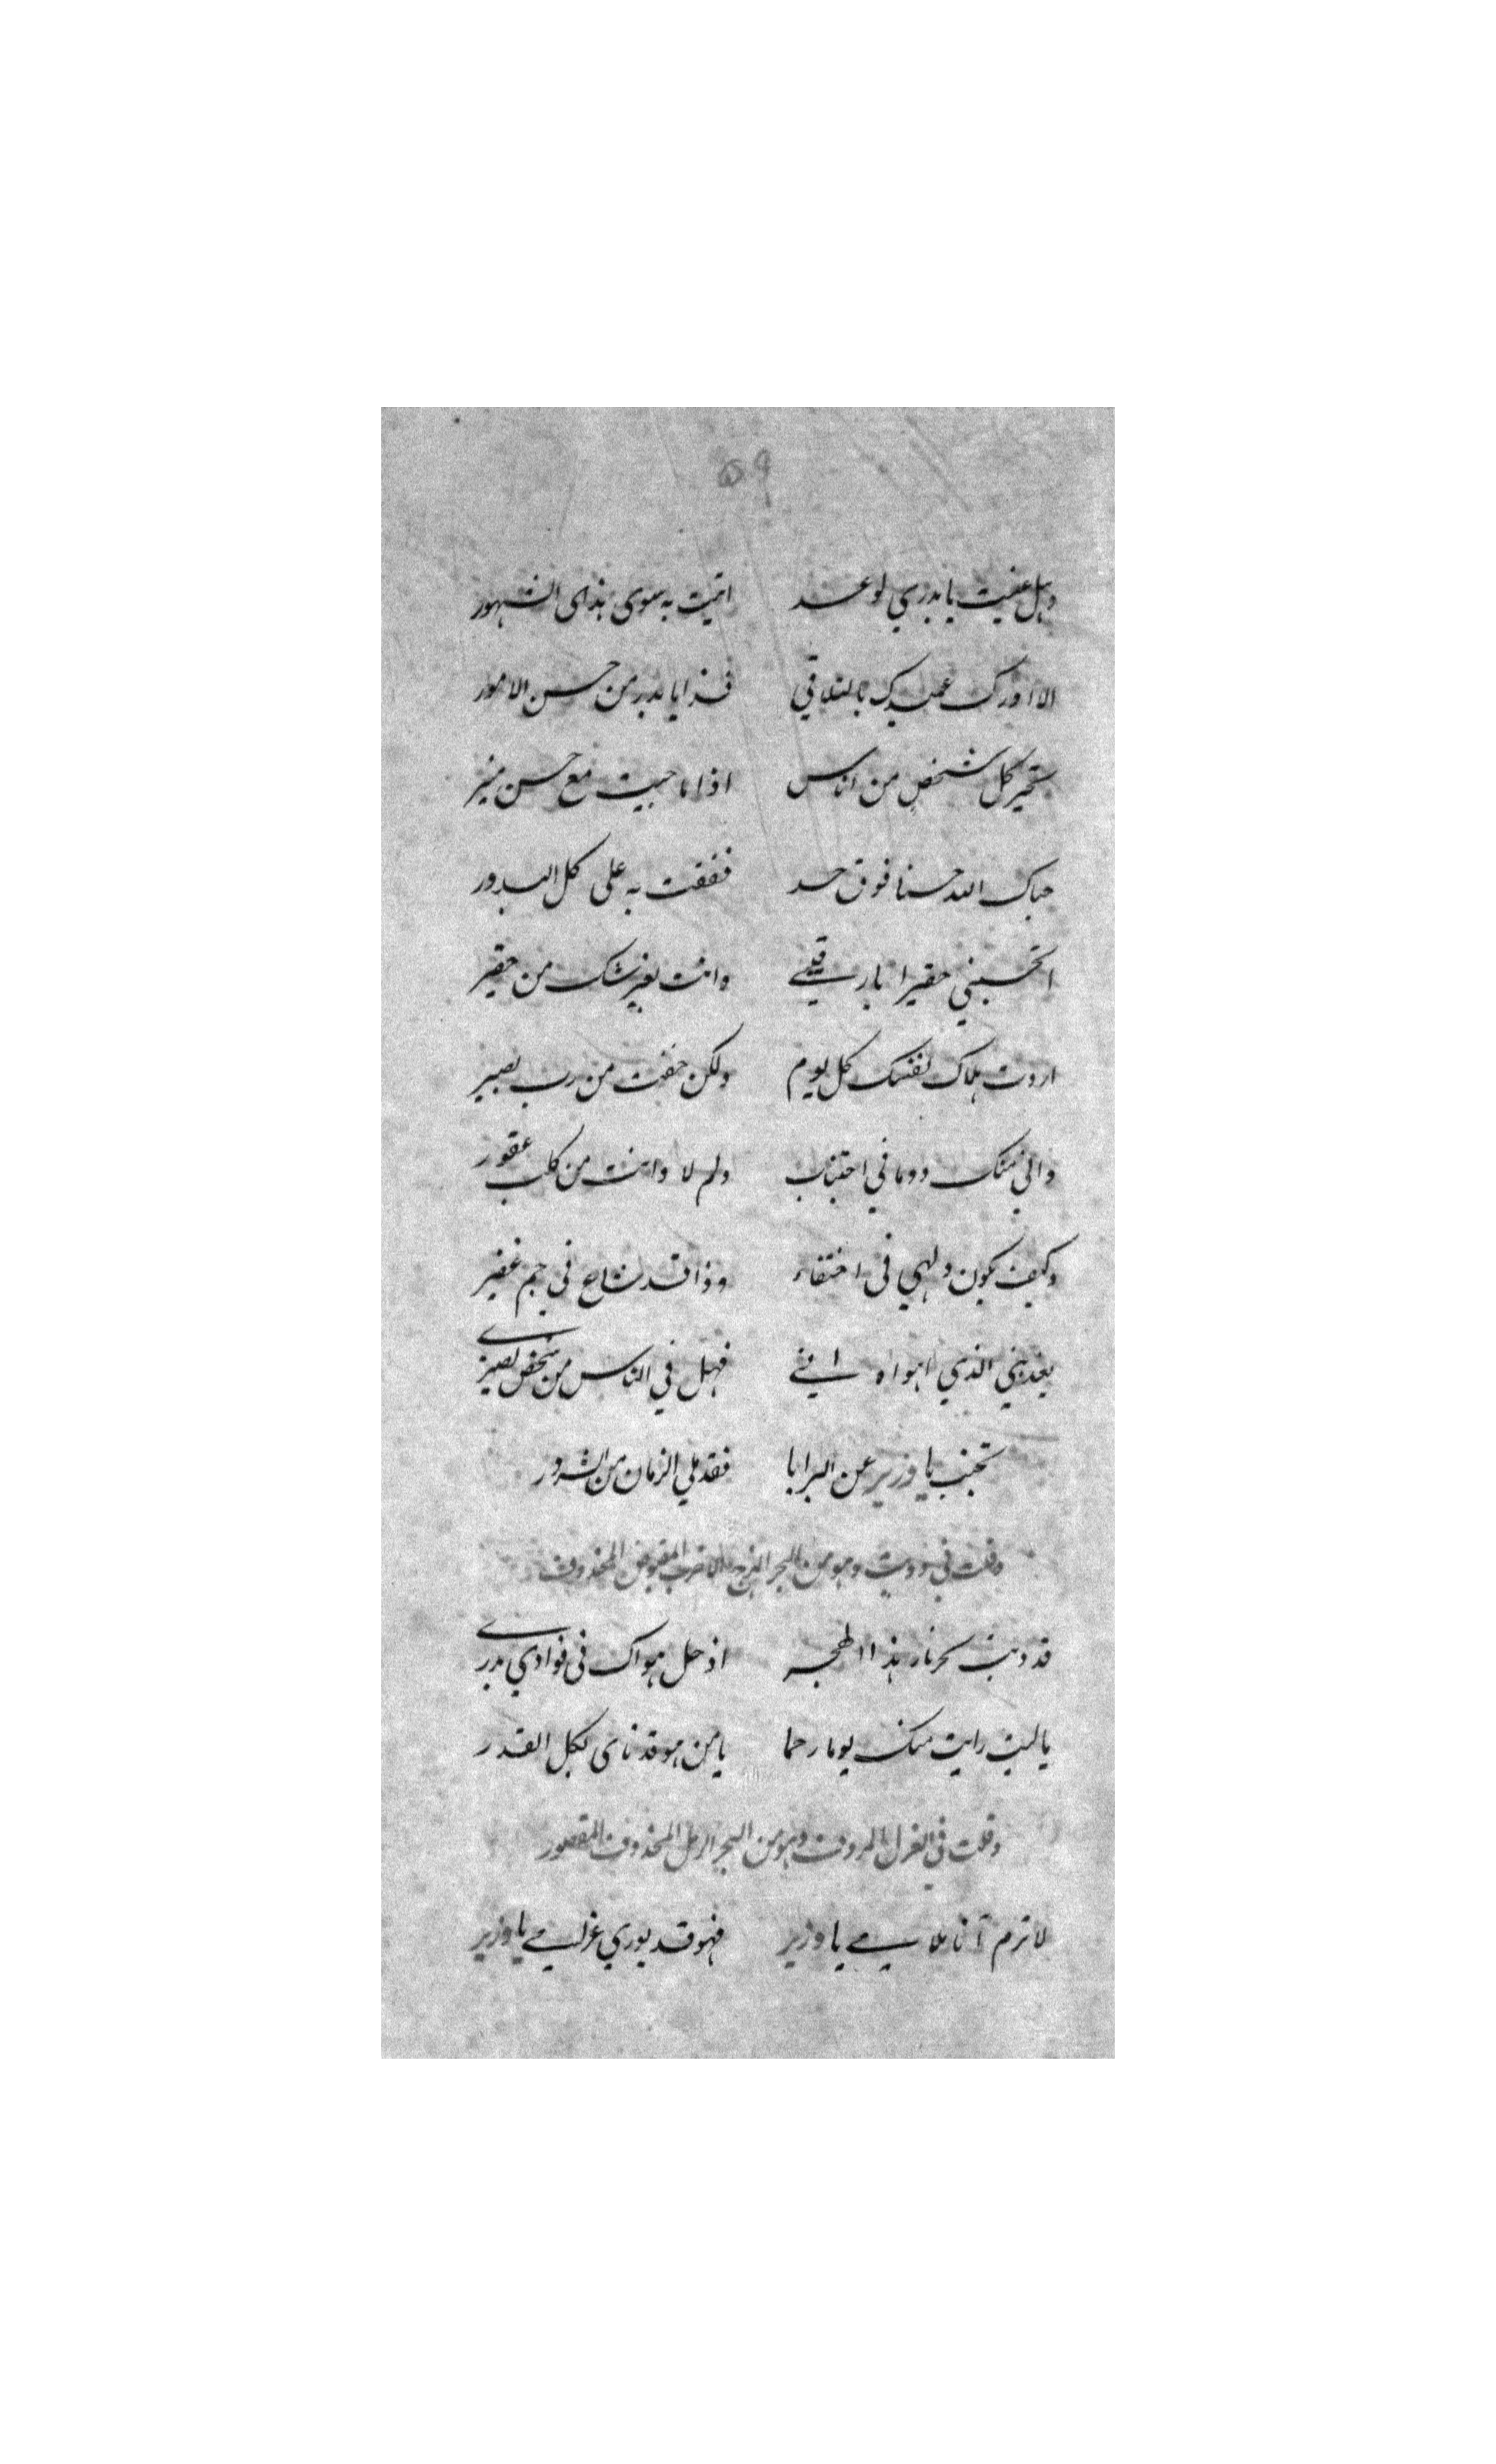 ٥٩
وهل عفيت يا بدري لوعد اتيت به سوى هذى الشهور
الا ادرك عميدك بالتلاقي فذا يا بدر من حسن الامور
تحير كل شخص من اناس اذا ما جيت مع حسن منير
حباك الله حسنا فوق حد ففقت به على كل البدور
اتحسبني حقيرا يا رقيبي وانت بغير شك من حقير
اردت هلاك نفسك كل يوم ولكن خفت من رب بصير
واني منك دوما في اجتناب ولم لا وانت من كلب عقور
وكيف يكون ولهي في اختفاء وذا قد شاع في جم غفير
يعذبني الذي اهواه اني فهل في الناس من شخص نصيري
تجنب يا وزير عن البرايا فقد ملي الزمان من الشرور
وقلت في دوبيت وهو من البحر الهزج المقبوض المحذوف
قد ذبت بحر نار هذا الهجر اذ حل هواك في فوادي بدري
يا ليت رايت منك يوما رحما يا من هو قد ناى بكل القدر
وقلت في الغزل المردوف وهو من البحر الرمل المحذوف المقصور
لا ترم آنا ملامي يا وزير فهو قد يوري غرامي يا وزير